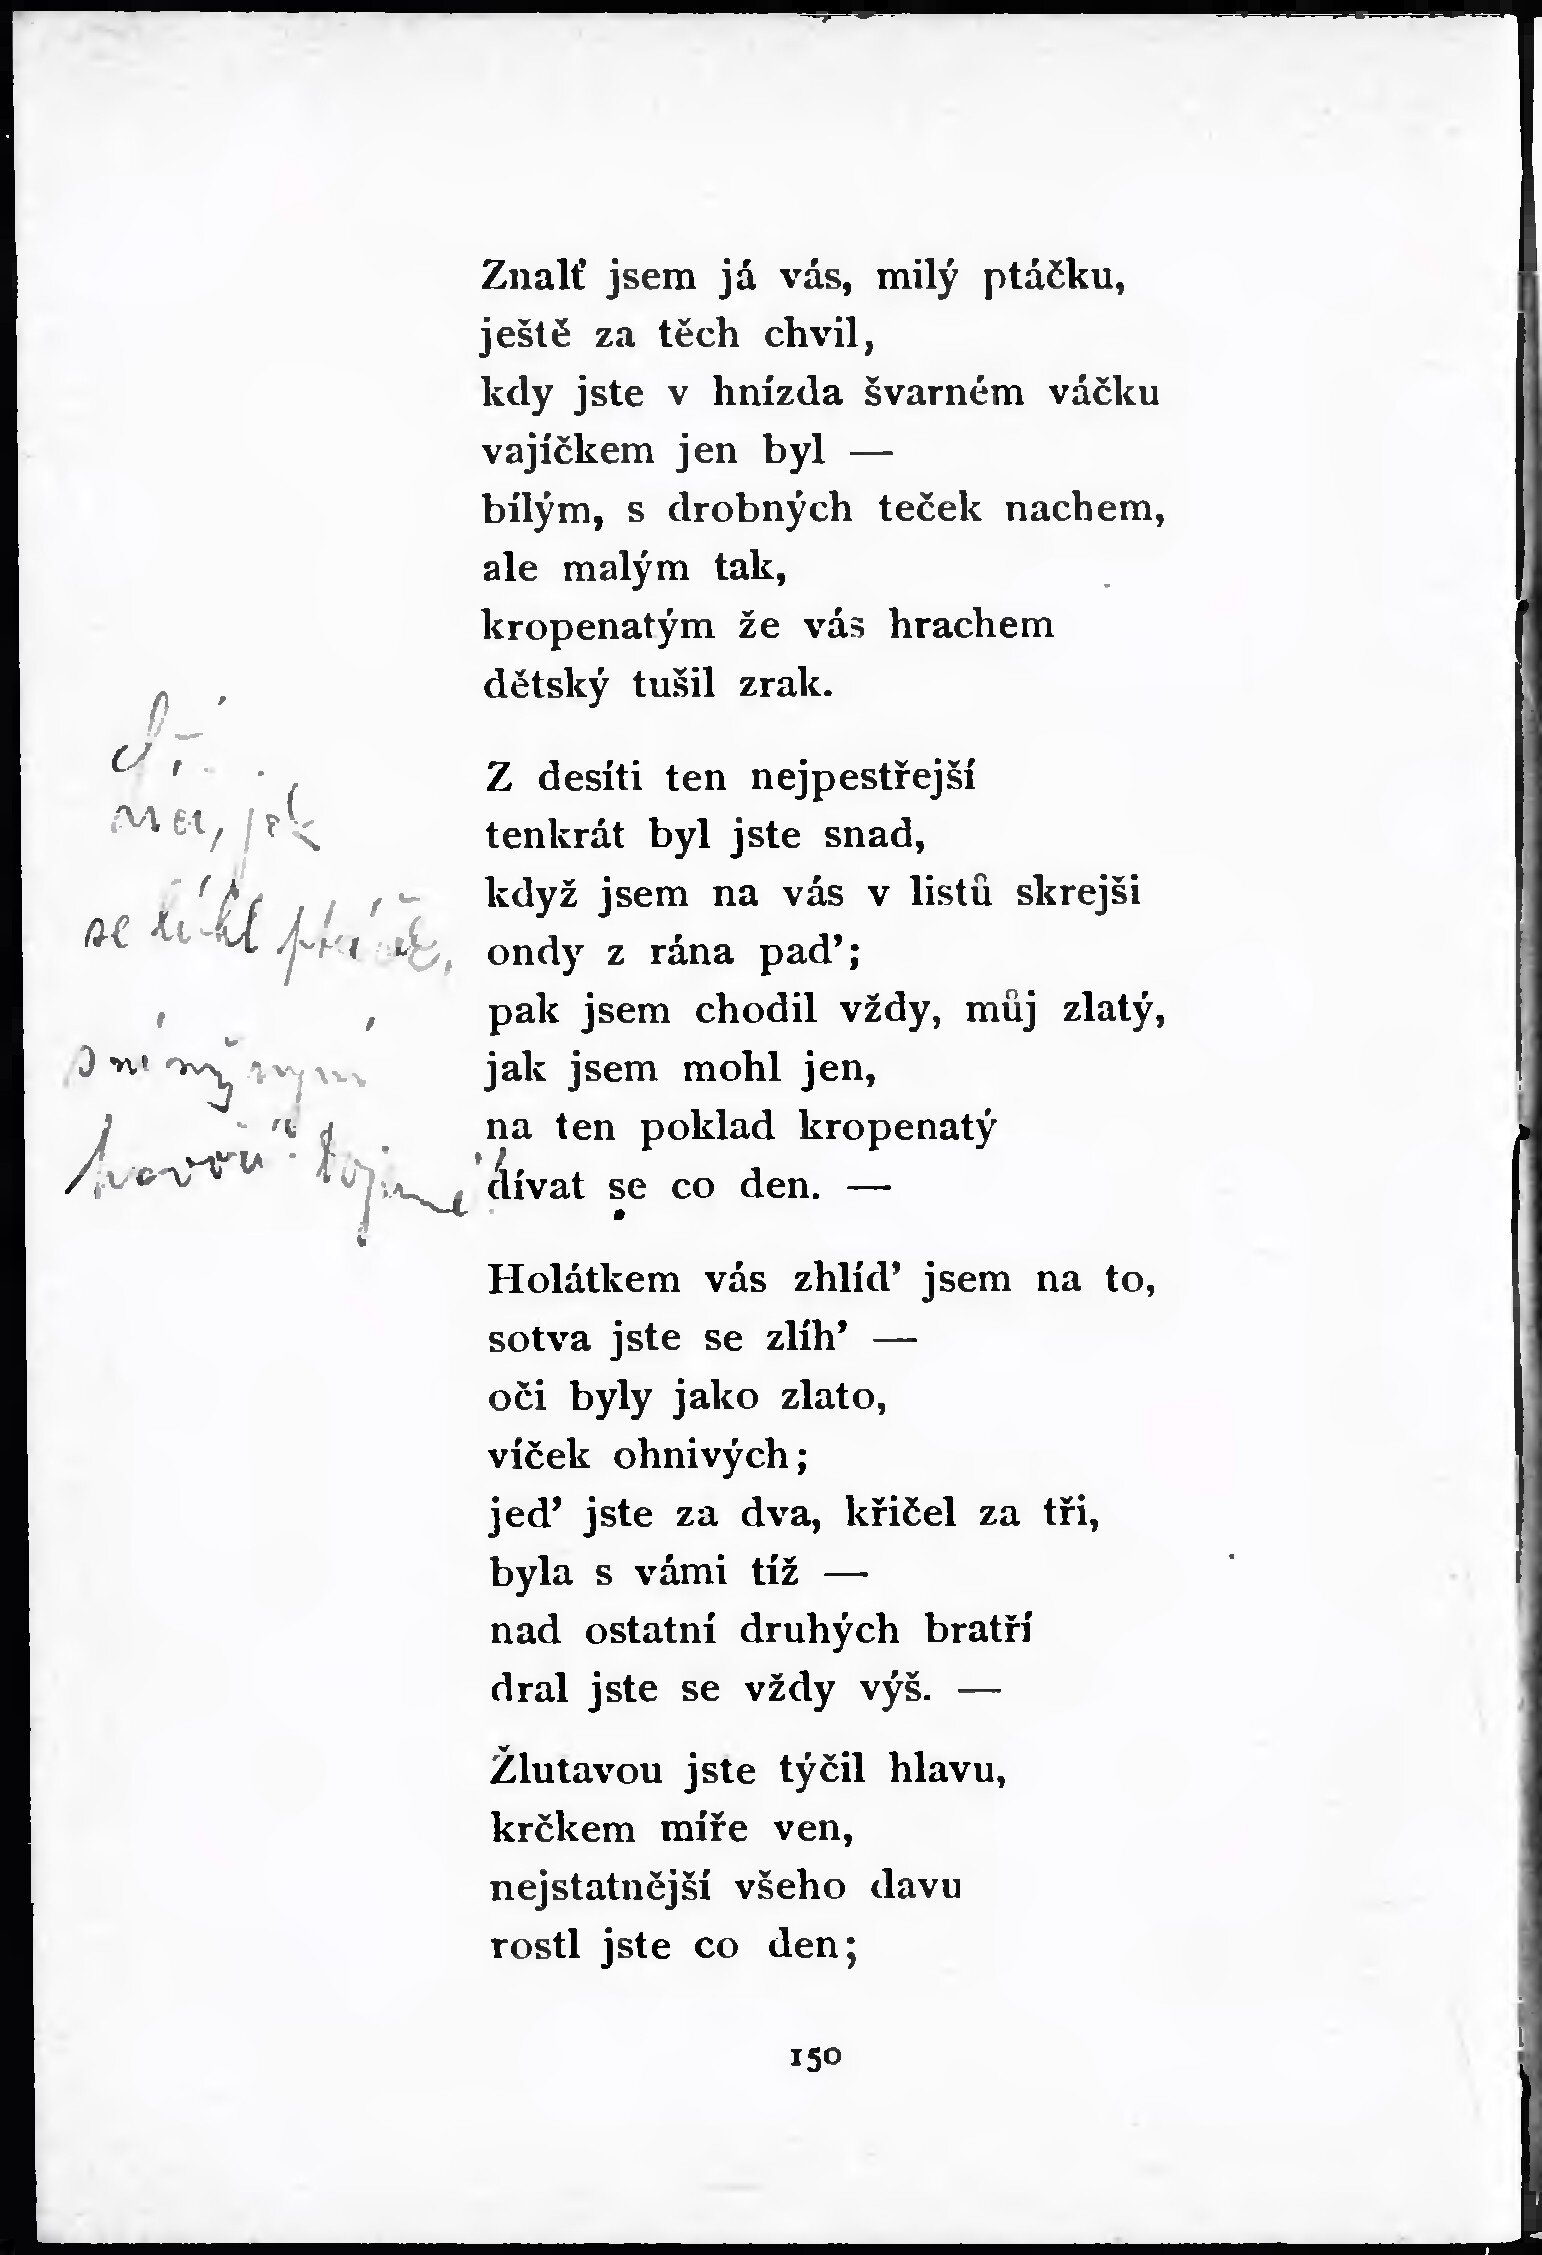 Znalť jsem já vás, milý ptáčku,
ještě za těch chvil,
kdy jste v hnízda švarném váčku
vajíčkem jen byl —
bílým, s drobných teček nachem,
ale malým tak,
kropenatým že vás hrachem
dětský tušil zrak.
jak
se líhl ptáče,
Z desíti ten nejpestřejší
tenkrát byl jste snad,
když jsem na vás v listů skrejši
ondy z rána pad’;
pak jsem chodil vždy, můj zlatý,
jak jsem mohl jen,
na ten poklad kropenatý
dívat se co den. —
Holátkem vás zhlíd’ jsem na to,
sotva jste se zlíh’ —
oči byly jako zlato,
víček ohnivých;
jed’ jste za dva, křičel za tři,
byla s vámi tíž —
nad ostatní druhých bratří
dral jste se vždy výš. —
Žlutavou jste týčil hlavu,
krčkem míře ven,
nejstatnější všeho davu
rostl jste co den;
150